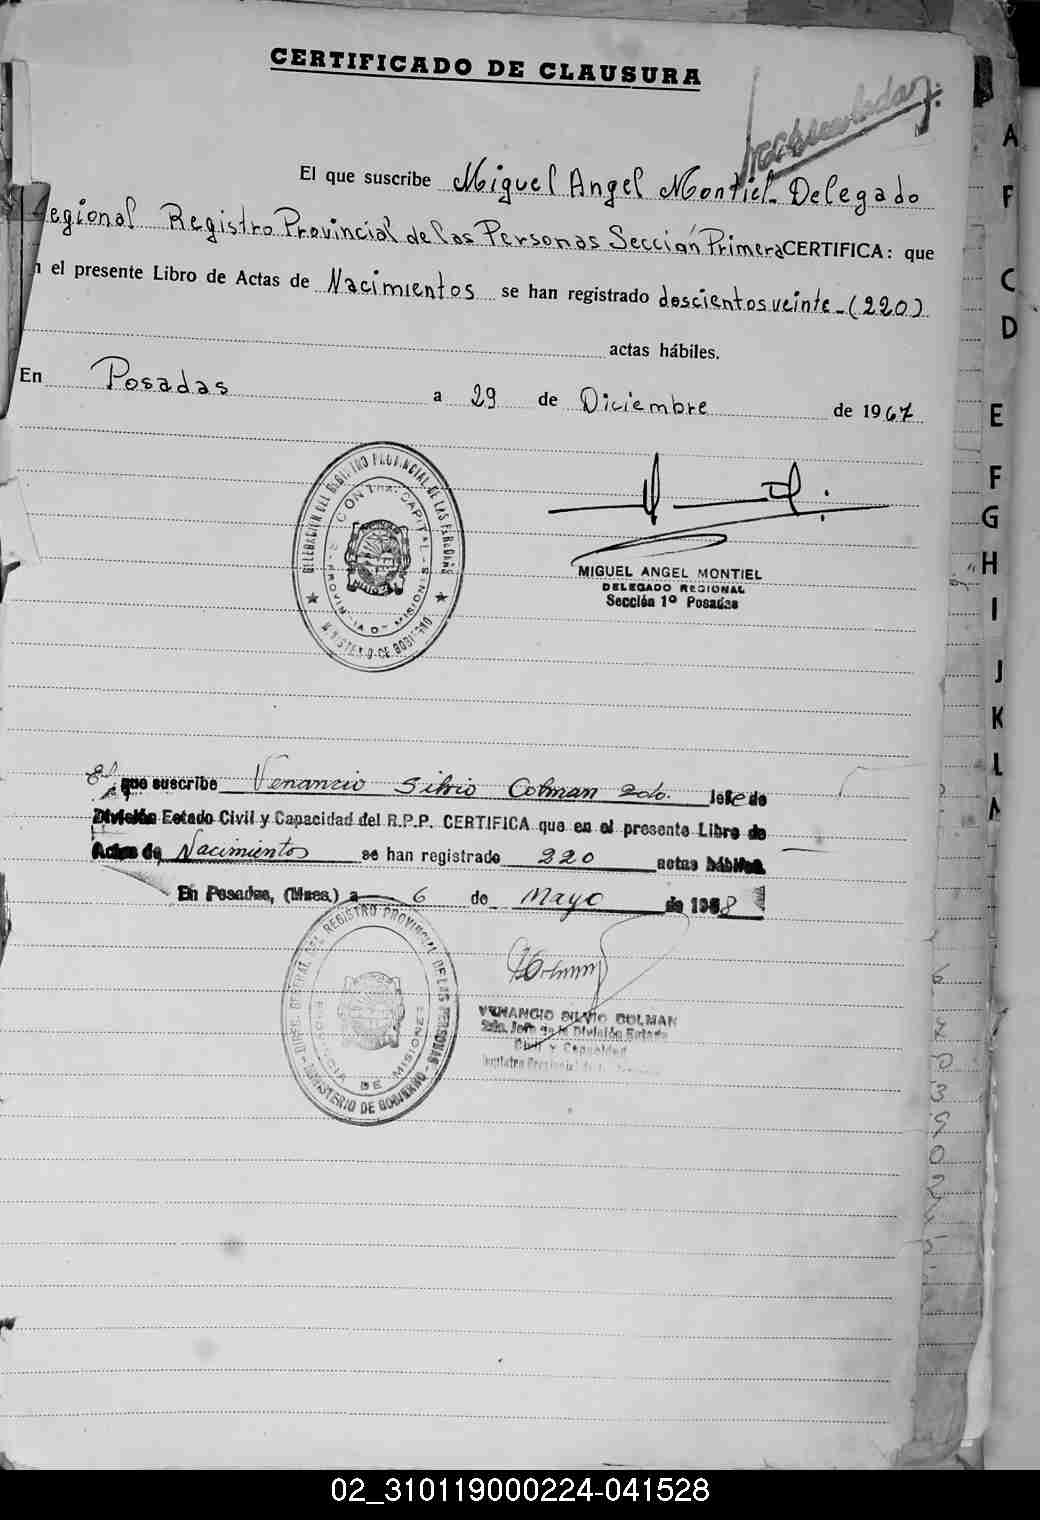 CERTIFICADO DE CLAUSURA
El que suscribe Miguel Angel Montiel - Delegado
Regional Registro Provincial de las Personas Sección Primera CERTIFICA: que
n el presente Libro de Actas de Nacimientos se han registrado doscientos veinte - (220)
actas hábiles.
En Posadas a 29 de Diciembre de 1967
DELEGACIÓN DEL REGISTRO PROVINCIAL DE LAS PERSONAS
PROVINCIA DE MISIONES
MINISTERIO DE GOBIERNO
MIGUEL ANGEL MONTIEL
DELEGADO REGIONAL
Sección 1º Posadas
El que suscribe Venancio Silvio Colman 2do. Jefe de
División Estado Civil y Capacidad del R.P.P. CERTIFICA que en el presente Libro de
Actas de Nacimientos se han registrado 220 actas hábiles.
En Posadas, (Mnes.) a 6 de Mayo de 1968
DIREC. GENERAL DEL REGISTRO PROVINCIAL DE LAS PERSONAS
PROVINCIA DE MISIONES
MINISTERIO DE GOBIERNO
VENANCIO SILVIO COLMAN
2do. Jefe de la División Estado
Civil y Capacidad
A
F
C
D
E
F
G
H
I
J
K
L
02_310119000224-041528